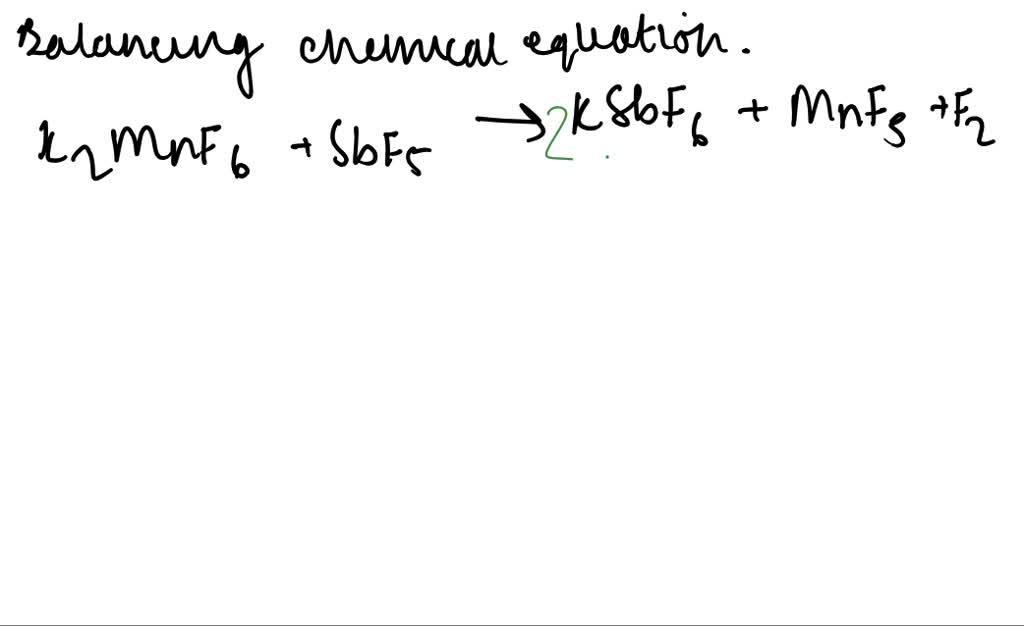 Balancing chemical equation.
K₂MnF₆ + SbF₅ → 2KSbF₆ + MnF₃ + F₂